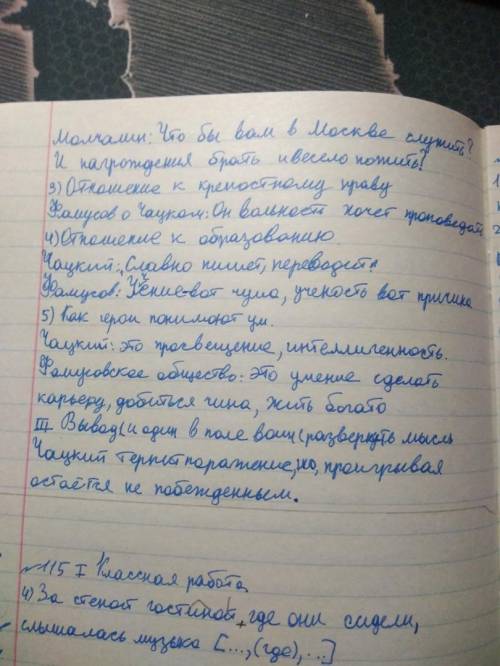 Молчалин: Что бы вам в Москве служить?
И награждения брать и весело пожить?
3) Отношение к крепостному праву
Фамусов о Чацком: Он вольность хочет проповедать
4) Отношение к образованию.
Чацкий: Славно пишет, переводит.
Фамусов: Ученье-вот чума, ученость вот причина
5) Как герои понимают ум.
Чацкий: это просвещение, интеллигенность.
Фамусовское общество: это умение сделать
карьеру, добиться чина, жить богато
III Вывод (и один в поле воин (развернуть мысль
Чацкий терпит поражение, но, проигрывая
остаётся не побежденным.
115 I Классная работа
4) За стеной гостиной, где они сидели,
слышалась музыка [..., (где), ...]